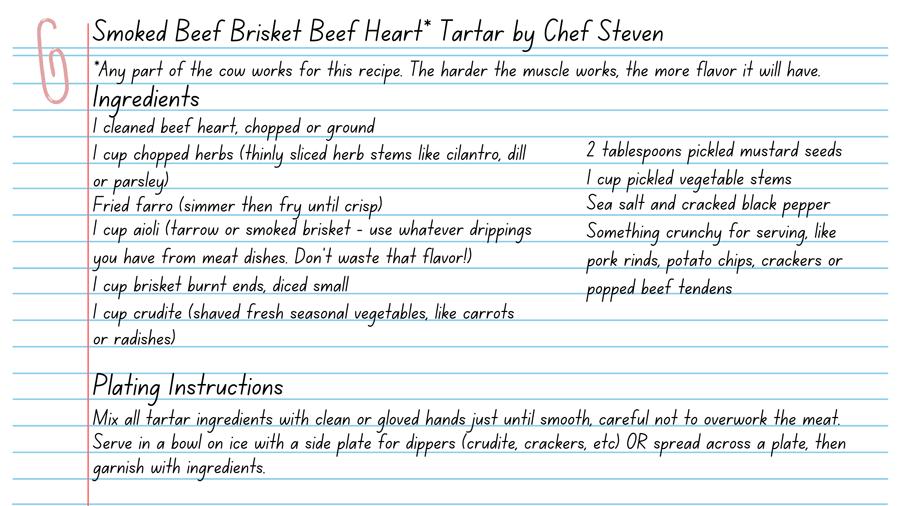 Smoked Beef Brisket Beef Heart* Tartar by Chef Steven
*Any part of the cow works for this recipe. The harder the muscle works, the more flavor it will have.
Ingredients
1 cleaned beef heart, chopped or ground
1 cup chopped herbs (thinly sliced herb stems like cilantro, dill
or parsley)
Fried farro (simmer then fry until crisp)
1 cup aioli (tarrow or smoked brisket - use whatever drippings
you have from meat dishes. Don't waste that flavor!)
1 cup brisket burnt ends, diced small
1 cup crudite (shaved fresh seasonal vegetables, like carrots
or radishes)
2 tablespoons pickled mustard seeds
1 cup pickled vegetable stems
Sea salt and cracked black pepper
Something crunchy for serving, like
pork rinds, potato chips, crackers or
popped beef tendens
Plating Instructions
Mix all tartar ingredients with clean or gloved hands just until smooth, careful not to overwork the meat.
Serve in a bowl on ice with a side plate for dippers (crudite, crackers, etc) OR spread across a plate, then
garnish with ingredients.